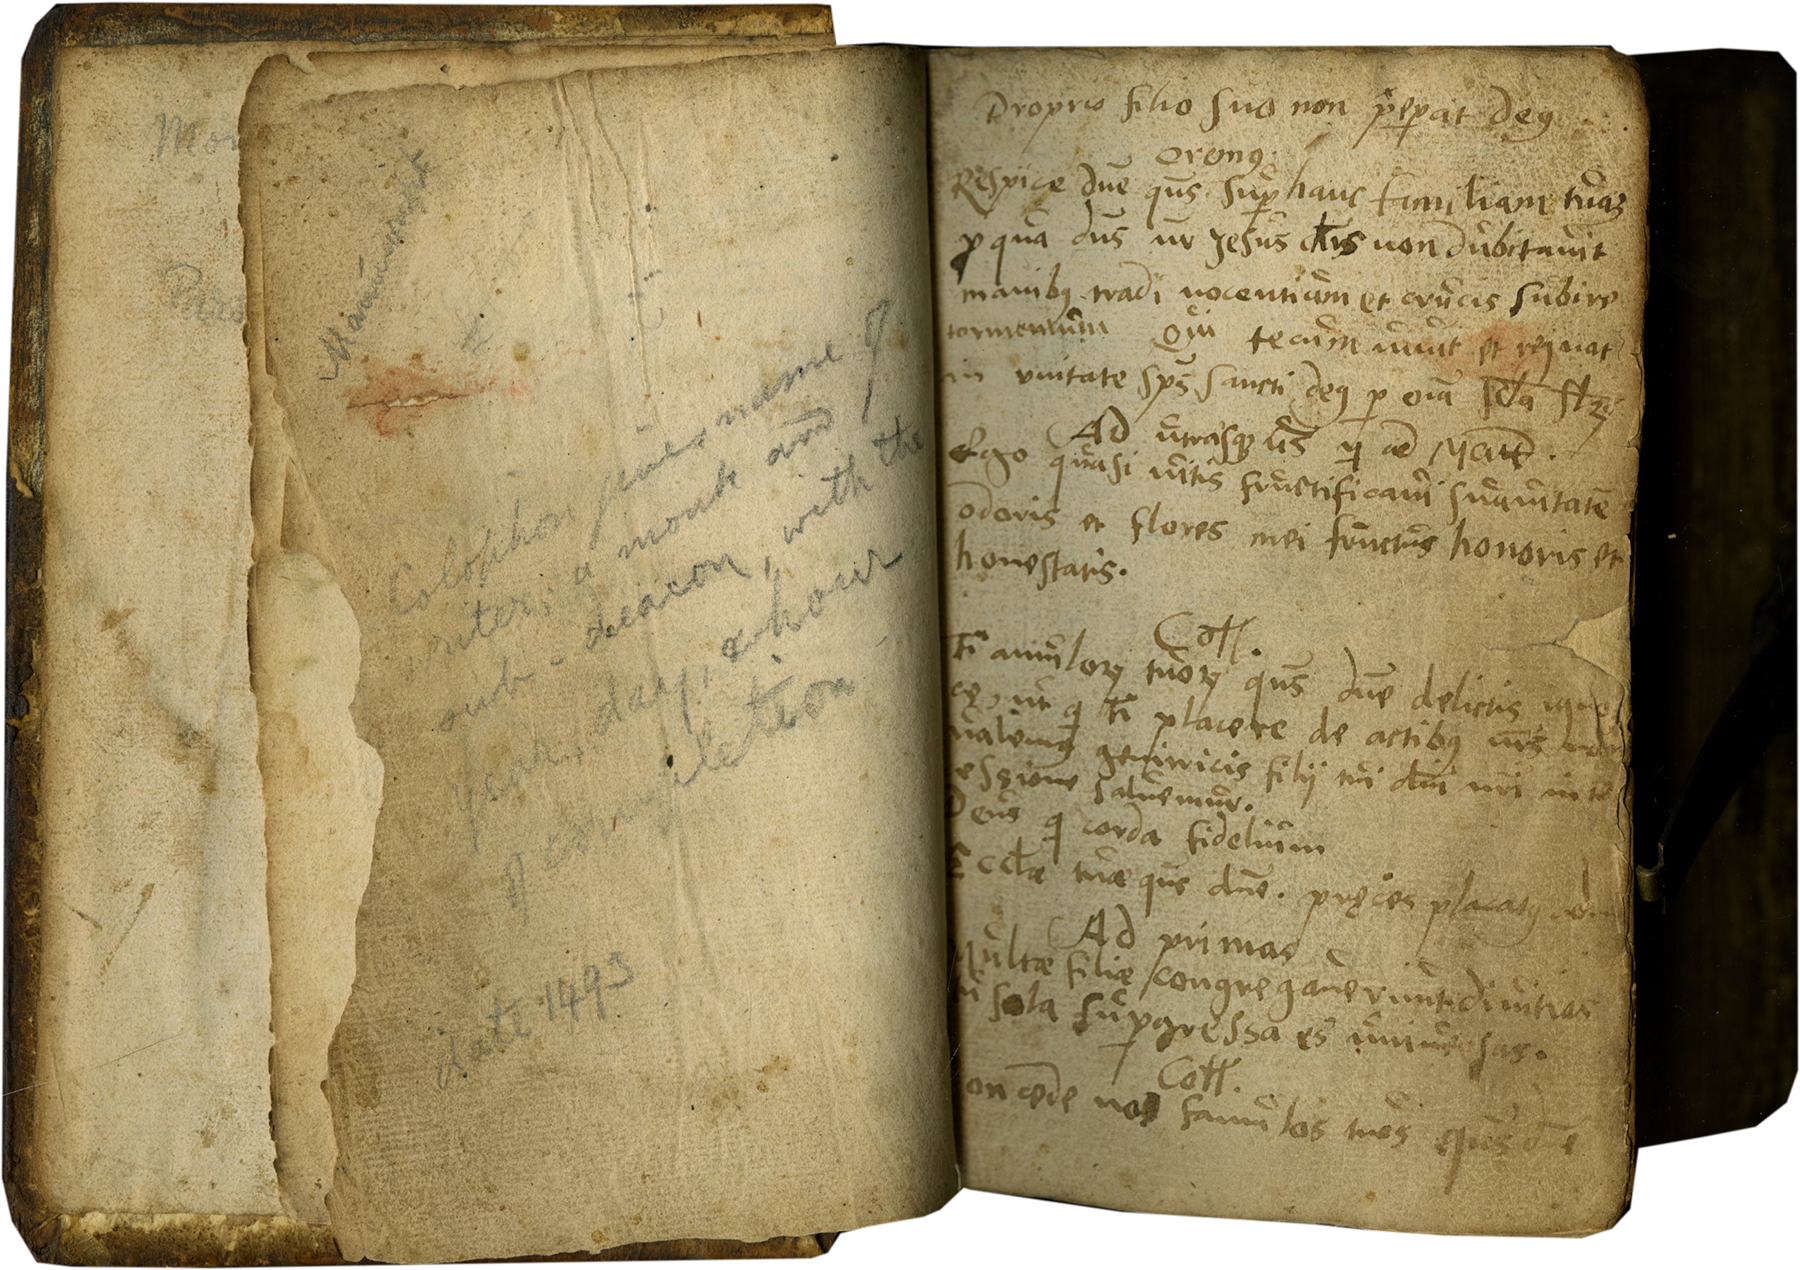 Mon
Par
Manuscript
Colophon gives name of
writer; a monk and
sub-deacon, with the
year, day, & hour
of completion
date 1493
Proprio filio suo non peperat deꝰ
Respice dn̄e qūs suꝑ hanc familiam tuā
ꝓ qua dn̄s nr̄ Jesus chr̄s non dubitauit
manibꝰ tradi nocentium et crucis subire
tormentum Qui tecum uiuit et regnat
in unitate sp̄s sancti deꝰ ꝑ oīa sc̄la
Ad utrasqꝫ
Ego quasi uitis fructificaui suauitatē
odoris et flores mei fructus honoris et
honestatis.
Coll.
Famuloꝝ tuoꝝ qūs dn̄e delictis
ut q̄ tī placere de actibꝰ nr̄is
ualemus genitricis filij tui dn̄i nr̄i inte
essione saluemur.
Deus q̄ corda fidelium
Eccl̄æ tuæ qūs dn̄e. pręces placatꝰ
Ad primas
Multæ filiæ congregauerunt diuitias
tu sola suꝑgressa es uniuersas.
Coll.
oncede nos famulos tuos qūs